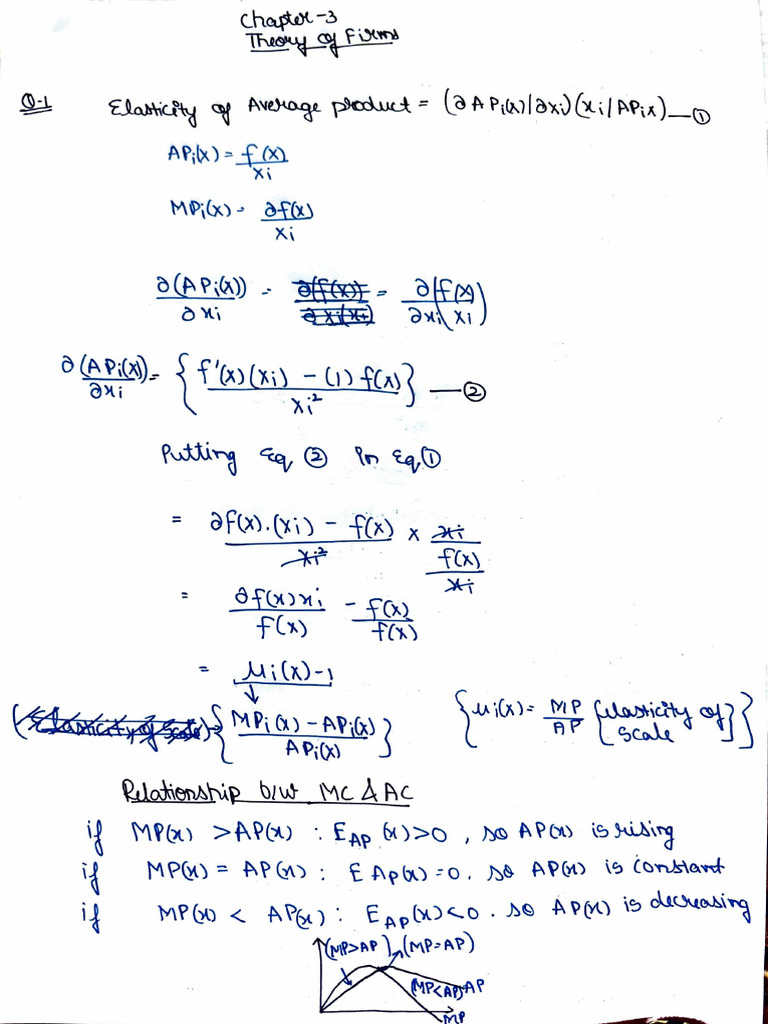 Chapter-3
Theory of Firms
Q-1 Elasticity of Average product = (∂APi(x)/∂xi)(xi/APix) — ①
APi(x) = f(x)/xi
MPi(x) = ∂f(x)/xi
∂(APi(x))/∂xi = ∂(f(x))/∂xi(xi) = ∂/∂xi (f(x)/xi)
∂(APi(x))/∂xi = {f'(x)(xi) - (1) f(x)/xi²} — ②
Putting Eq ② in Eq ①
= ∂f(x).(xi) - f(x)/xi² × xi/f(x)/xi
= ∂f(x)xi/f(x) - f(x)/f(x)
= μi(x)-1
(Elasticity of Scale) {MPi(x) - APi(x)/APi(x)} {μi(x) = MP/AP {elasticity of scale}}
Relationship b/w MC & AC
if MP(x) > AP(x) : EAP(x)>0, so AP(x) is rising
if MP(x) = AP(x) : EAP(x)=0. so AP(x) is constant
if MP(x) < AP(x) : EAP(x)<0. so AP(x) is decreasing
(MP>AP) (MP=AP)
(MP<AP) AP
MP